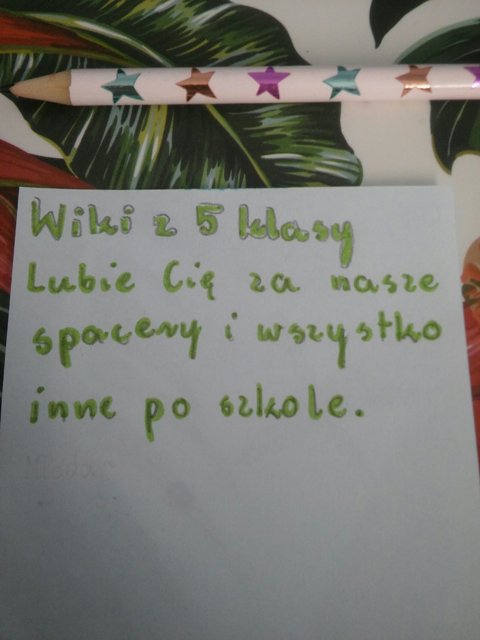 Wiki z 5 klasy
Lubie Cię za nasze
spacery i wszystko
inne po szkole.